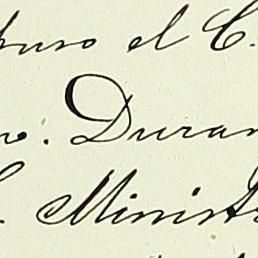 puso el C.
o. Duran
. Minist